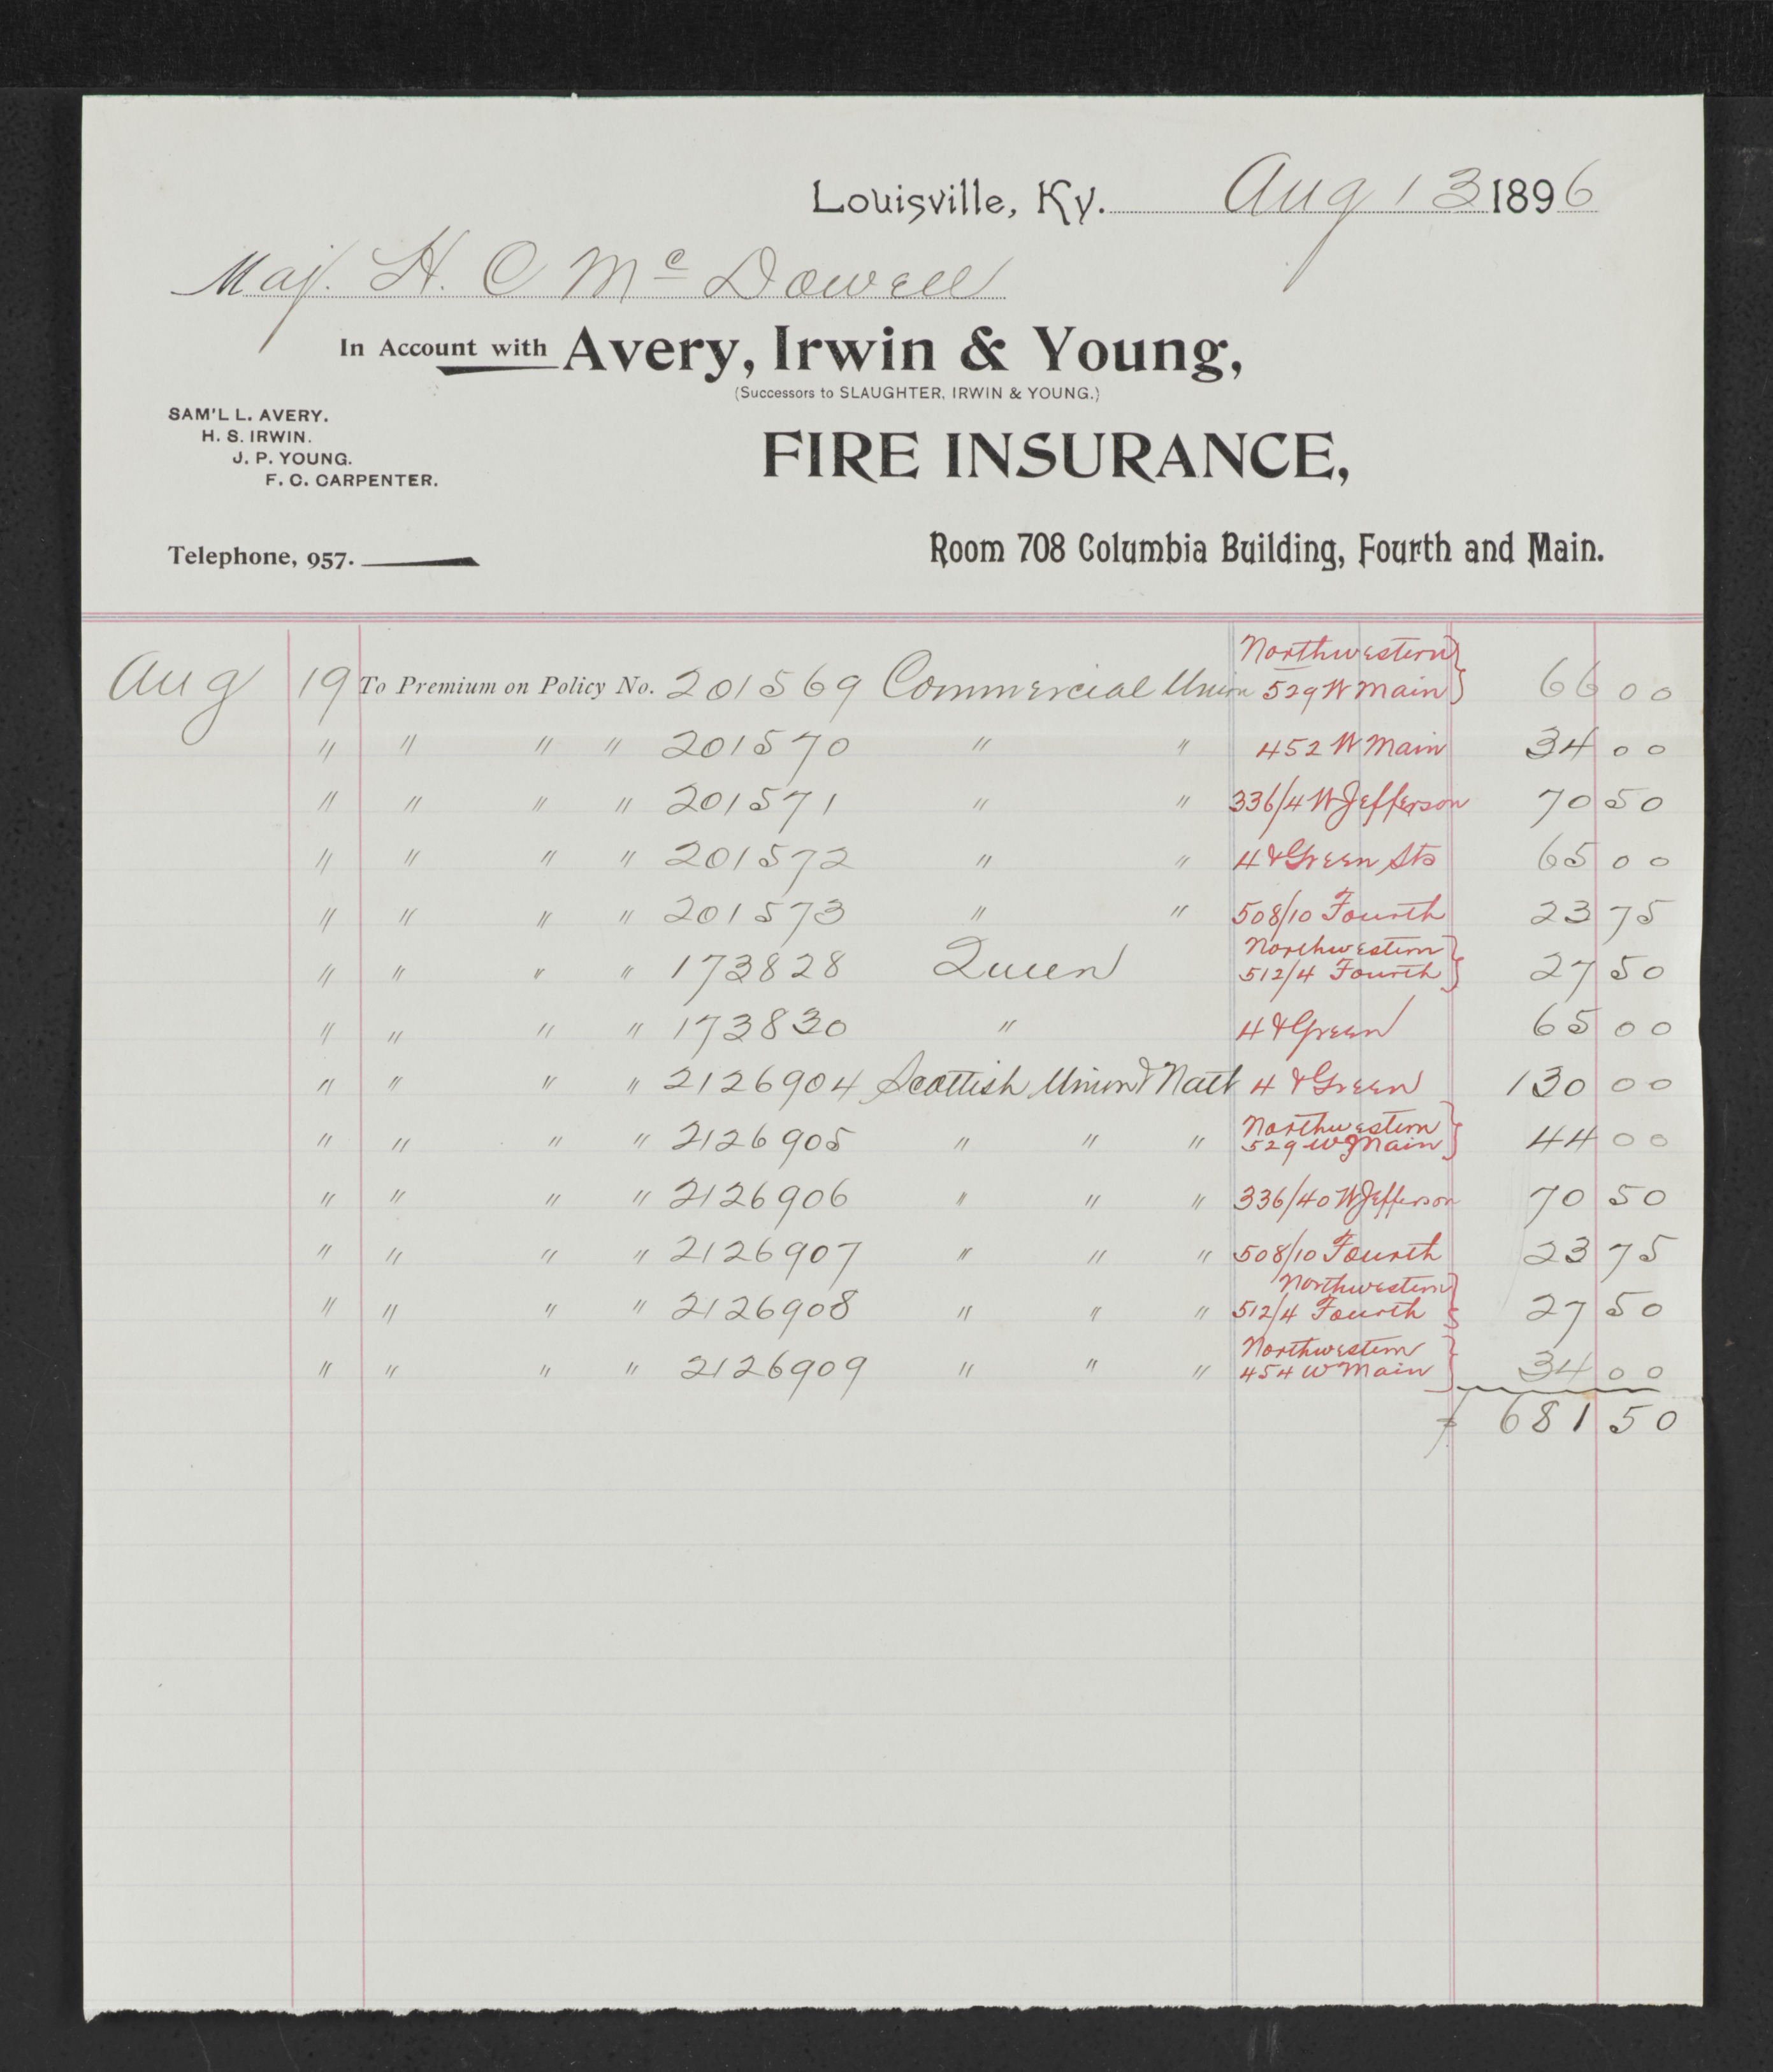 Louisville, Ky. Aug 13 1896
Maj. H. C Mc Dowell
In Account with Avery, Irwin & Young,
(Successors to SLAUGHTER, IRWIN & YOUNG.)
SAM'L L. AVERY.
H. S. IRWIN.
J. P. YOUNG.
F. C. CARPENTER.
FIRE INSURANCE,
Telephone, 957.
Room 708 Columbia Building, Fourth and Main.
Northwestern
Aug 19 To Premium on Policy No. 201569 Commercial Union 529 W Main 66 00
" " " " 201570 " " 452 W Main 34 00
" " " " 201571 " " 336/4 W Jefferson 70 50
" " " " 201572 " " 4 & Green Sts 65 00
" " " " 201573 " " 508/10 Fourth 23 75
Northwestern
" " " " 173828 Queen 512/4 Fourth 27 50
" " " " 173830 " 4 & Green 65 00
" " " " 2126904 Scottish Union & Natl 4 & Green 130 00
Northwestern
" " " " 2126905 " " " 529 W Main 44 00
" " " " 2126906 " " " 336/40 W Jefferson 70 50
" " " " 2126907 " " " 508/10 Fourth 23 75
Northwestern
" " " " 2126908 " " " 512/4 Fourth 27 50
Northwestern
" " " " 2126909 " " " 454 W Main 34 00
$ 681 50